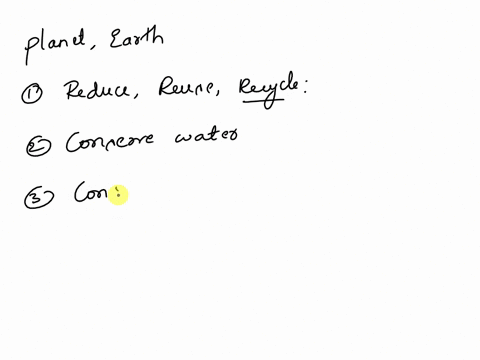 Planet, Earth
① Reduce, Reuse, Recycle:
② Conserve water
③ Con